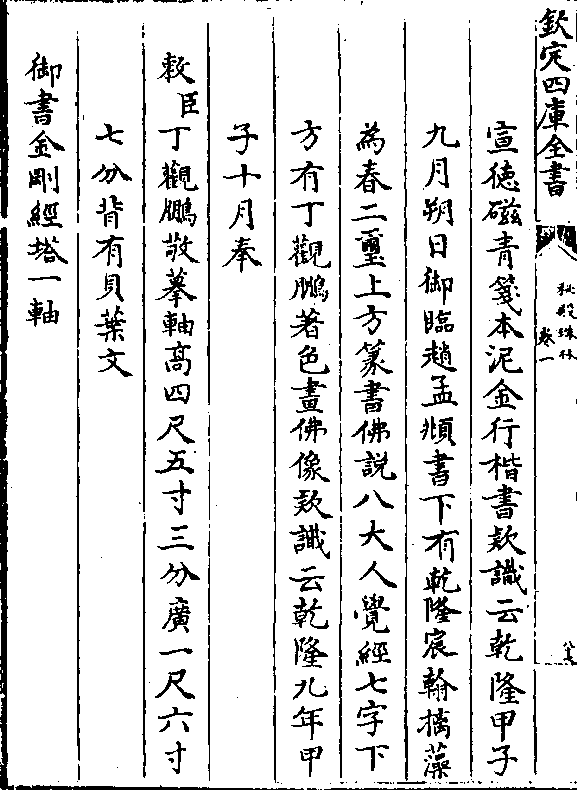 欽定四庫全書
秘殿珠林
卷一
宣徳磁青箋本泥金行楷書欵識云乾隆甲子
九月朔日御臨趙孟頫書下有乾隆宸翰摛藻
為春二璽上方篆書佛説八大人覺經七字下
方有丁觀鵬著色畫佛像欵識云乾隆九年甲
子十月奉
敕臣丁觀鵬敬摹軸髙四尺五寸三分廣一尺六寸
七分背有貝葉文
御書金剛經塔一軸